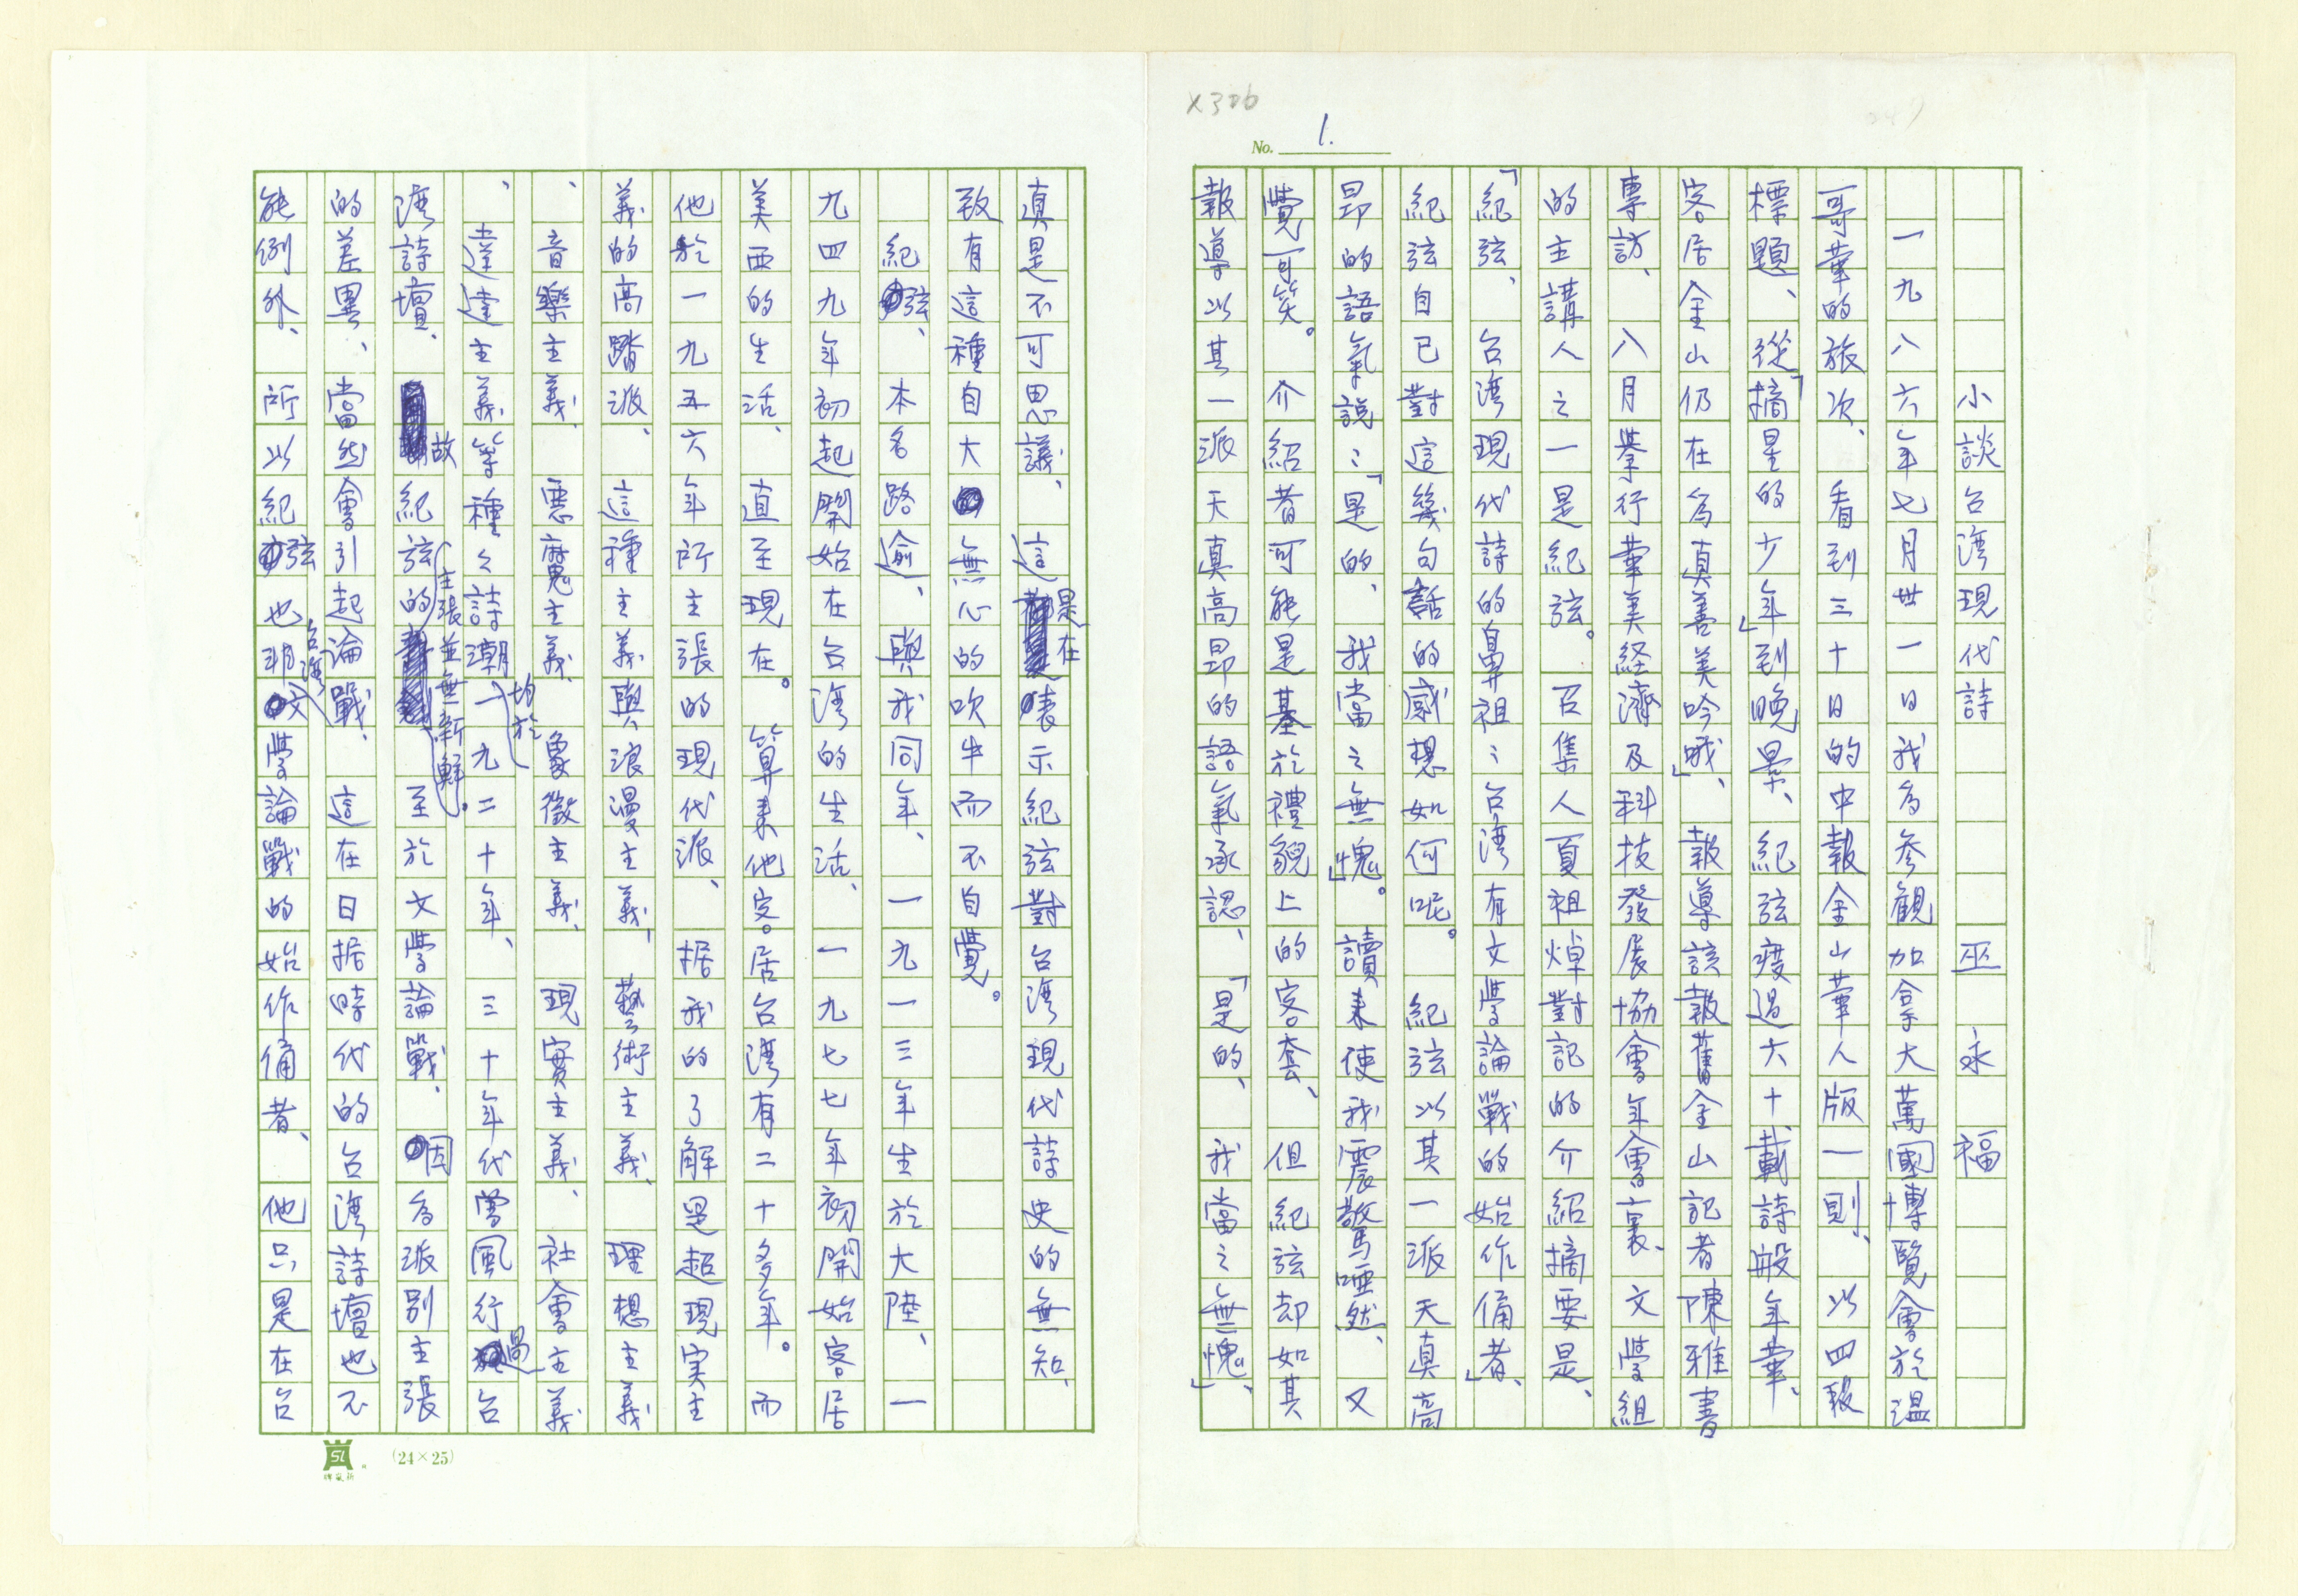 X306
No. 1.
小談台灣現代詩　巫永福
一九八六年七月卅一日我為參觀加拿大萬國博覽會於溫
哥華的旅次、看到三十日的中報金山華人版一則、以四段
標題、從「摘星的少年」到晚景、紀弦渡過六十載詩般年華、
客居金山仍在為真善美吟哦」、報導該報舊金山記者陳雅書
專訪、八月舉行華美経濟及科技發展協會年會裏、文學組
的主講人之一是紀弦。召集人夏祖焯對記的介紹摘要是、
「紀弦、台湾現代詩的鼻祖：台湾有文學論戰的始作俑者」、
紀弦自己對這幾句話的感想如何呢。紀弦以其一派天真高
昻的語氣說：「是的、我當之無愧」。讀来使我震驚啞然、又
覺可笑。介紹者可能是基於禮貌上的客套、但紀弦却如其
報導以其一派天真高昻的語氣承認、「是的、我當之無愧」、
真是不可思議、這是在表示紀弦對台湾現代詩史的無知、
致有這種自大無心的吹牛而不自覺。
紀弦、本名路逾、與我同年、一九一三年生於大陸、一
九四九年初起開始在台湾的生活、一九七七年初開始客居
美西的生活、直至現在。算来他客居台湾有二十多年。而
他於一九五六年所主張的現代派、据我的了解是超現実主
義的高踏派、這種主義與浪漫主義、藝術主義、理想主義
、音樂主義、惡魔主義、象徵主義、現實主義、社會主義
、達達主義等種々詩潮均於一九二十年、三十年代曾風行過台
湾詩壇、故紀弦的主張並無新鮮。至於文學論戰、因為派別主張
的差異、當然會引起論戰、這在日据時代的台湾詩壇也不
能例外、所以紀弦也非台湾文學論戰的始作俑者、他只是在台
SL
(24×25)